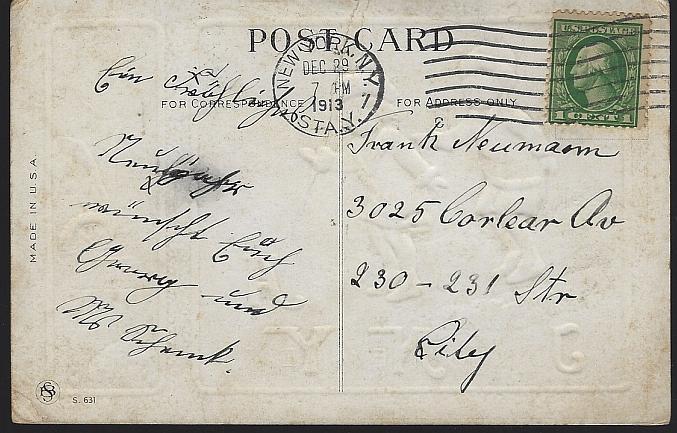 POST CARD
NEW YORK, N.Y.
DEC 29
7 PM
1913
STA. Y.
7
U.S. POSTAGE
1 CENT 1
FOR CORRESPONDENCE
FOR ADDRESS ONLY
Ein
Neujahr
wünscht Euch
Georg und
Schenk.
Frank Neumann
3025 Corlear Av
230 - 231 Str
City
MADE IN U.S.A.
S. 631